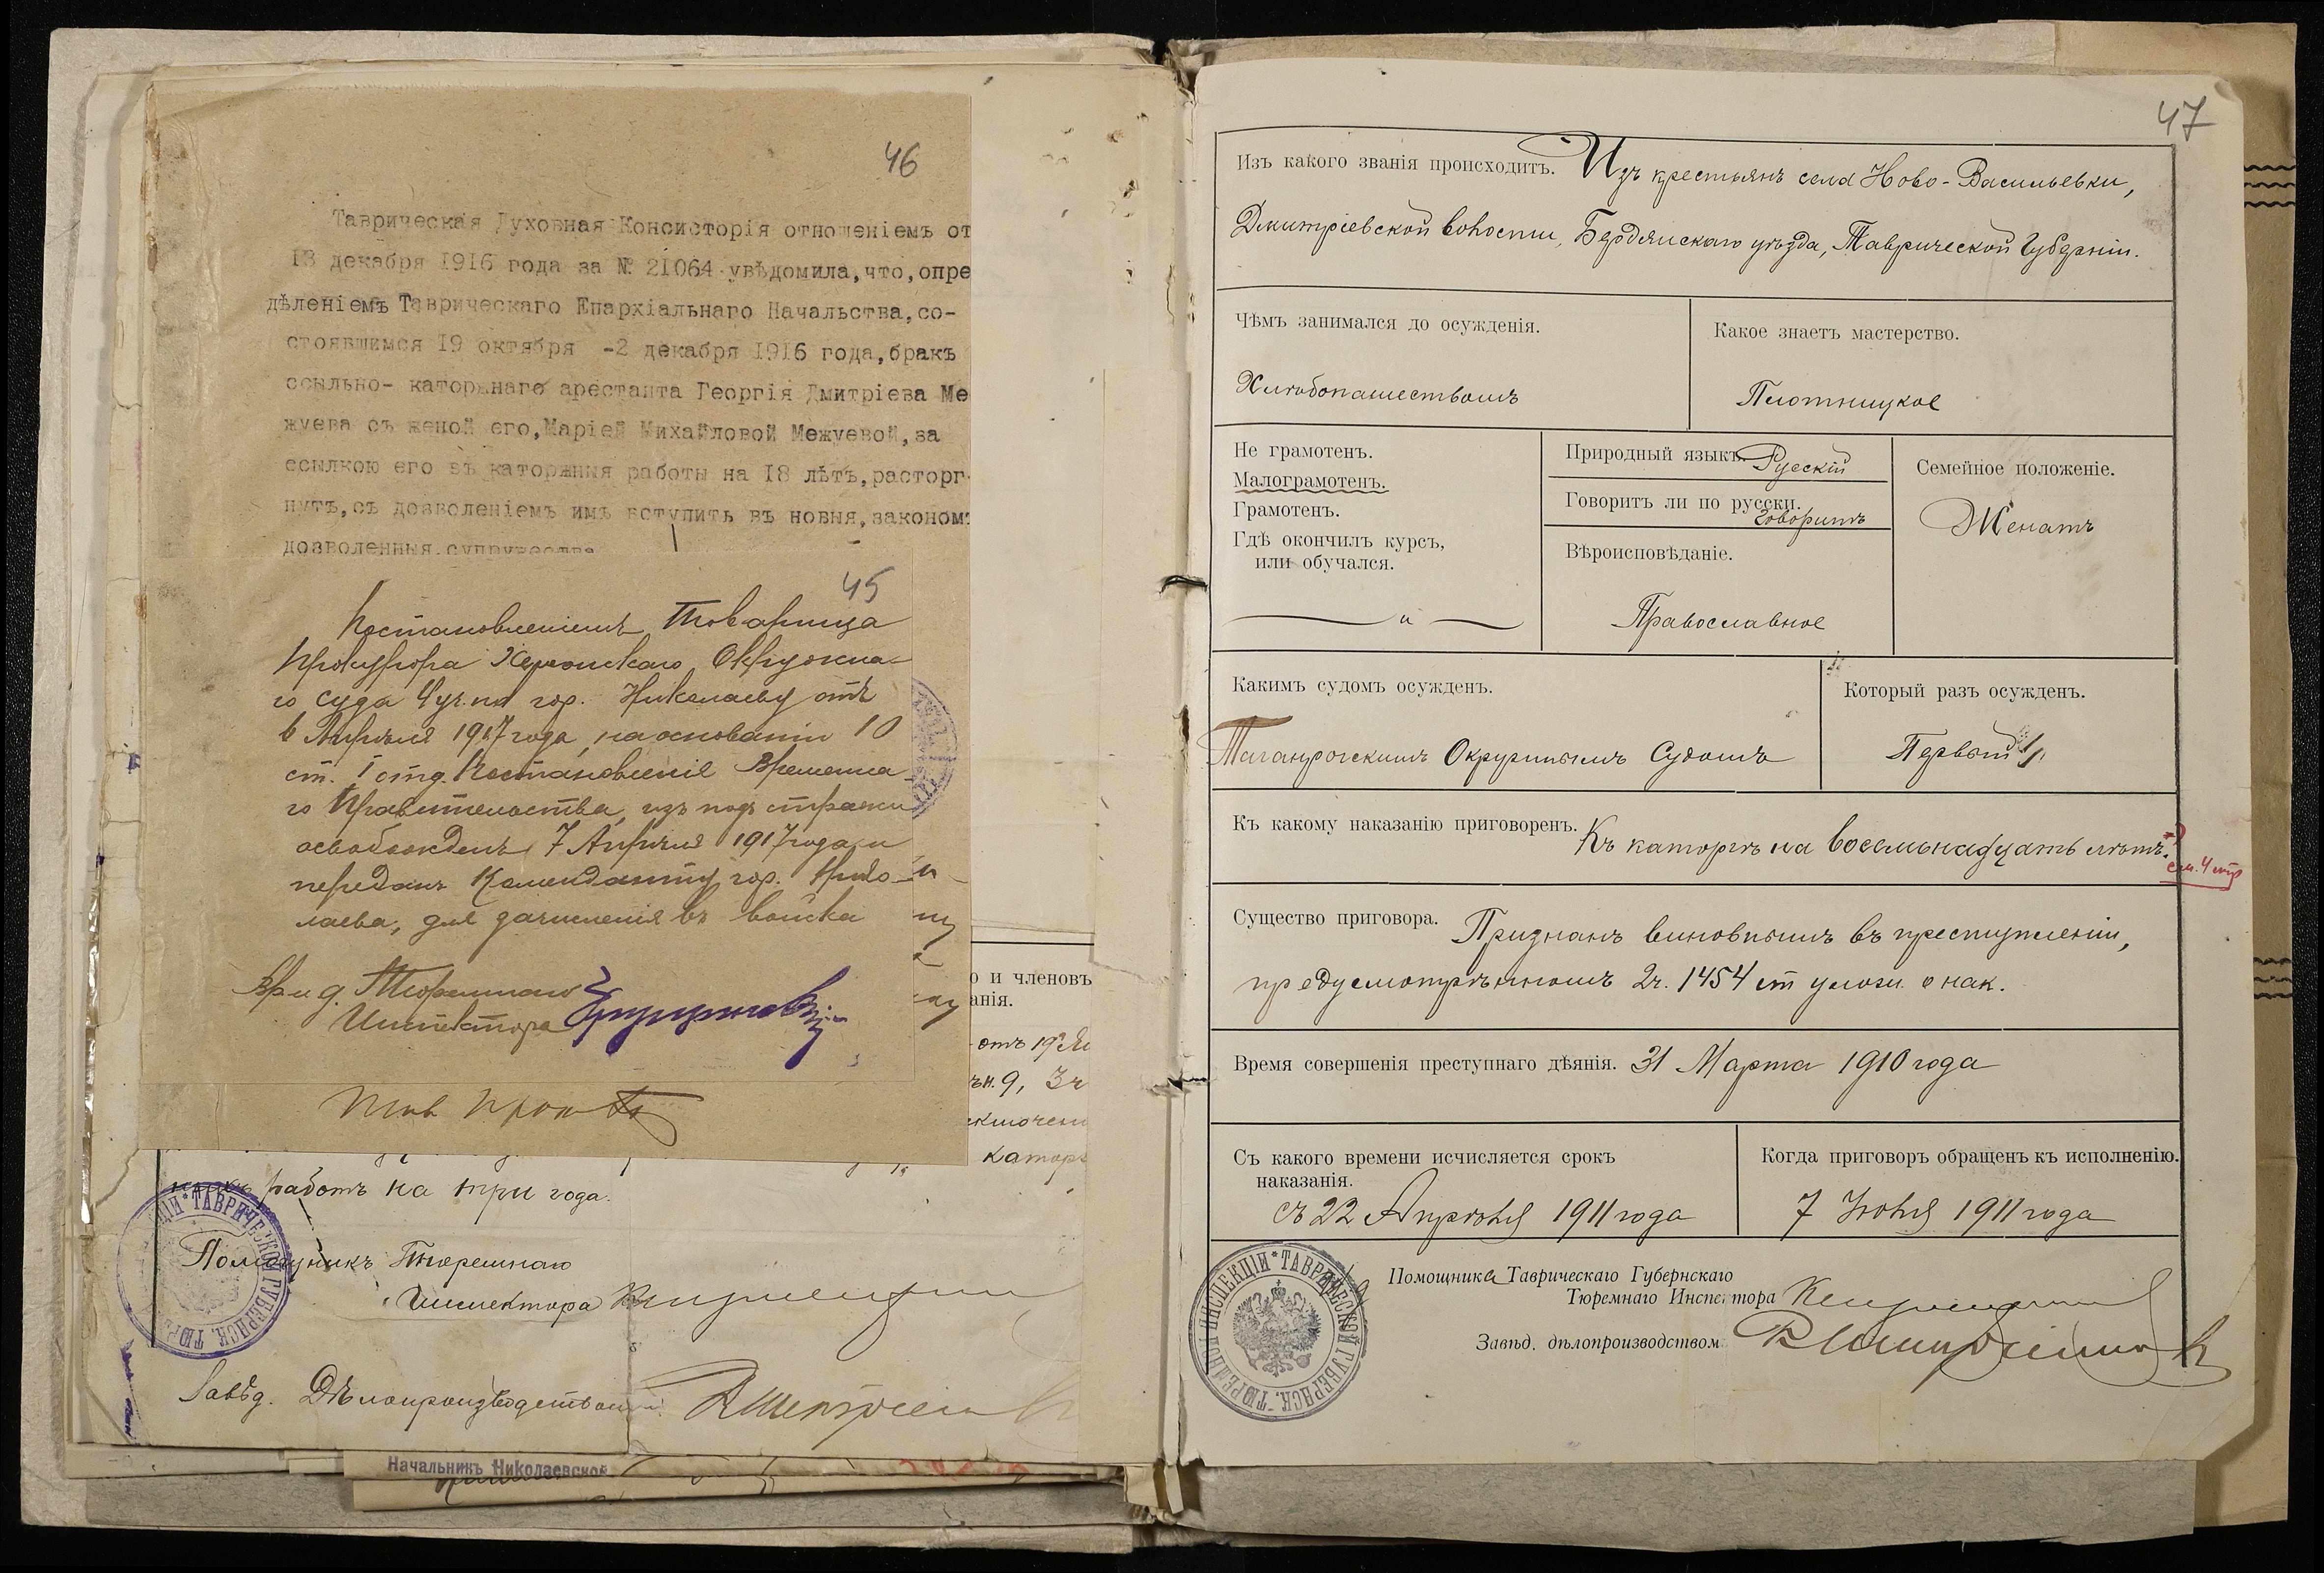 46
Таврическая Духовная Консисторія отношеніемъ от
18 декабря 1916 года за № 21064 увѣдомила, что, опре
дѣленіемъ Таврическаго Епархіальнаго Начальства, со-
стоявшимся 19 октября -2 декабря 1916 года, бракъ
ссыльно- каторжнаго арестанта Георгія Дмитріева Ме
жуева съ женой его, Маріей Михайловой Межуевой, за
ссылкою его въ каторжныя работы на 18 лѣтъ, расторг
нутъ, съ дозволеніемъ имъ вступить въ новыя, законом
дозволенныя супружества
45
Постановленіемъ Товарища
Прокурора Херсонскаго Окружна-
го суда 4 уч. по гор. Николаеву отъ
6 Апрѣля 1917 года, на основаніи 10
ст. I отд. Постановленія Временна-
го Правительства, изъ подъ стражи
освобожденъ 7 Апрѣля 1917 года и
переданъ Коменданту гор. Нико-
лаева, для зачисленія въ войска
Врид. Тюремнаго
Инспектора
Тов Прок
о и членовъ
анія.
отъ 19
9, 3 ч
ключені
каторж
работъ на три года.
Помощникъ Тюремнаго
Инспектора
Завѣд. Дѣлопроизводствомъ
Начальникъ Николаевской
47
Изъ какого званія происходитъ. Изъ крестьянъ села Ново-Васильевки,
Дмитріевской волости, Бердянскаго уѣзда, Таврической Губерніи.
Чѣмъ занимался до осужденія.
Хлѣбопашествомъ
Какое знаетъ мастерство.
Плотницкое
Не грамотенъ.
Малограмотенъ.
Грамотенъ.
Гдѣ окончилъ курсъ,
или обучался.
Природный языкъ. Русскій
Говоритъ ли по русски.
Говоритъ
Вѣроисповѣданіе.
Православное
Семейное положеніе.
Женатъ
Какимъ судомъ осужденъ.
Таганрогскимъ Окружнымъ Судомъ
Который разъ осужденъ.
Первый
Къ какому наказанію приговоренъ. Къ каторгѣ на восемьнадцать лѣтъ.
см. 4 стр
Существо приговора. Признанъ виновнымъ въ преступленіи,
предусмотрѣнномъ 2 ч. 1454 ст улож. о нак.
Время совершенія преступнаго дѣянія. 31 Марта 1910 года
Съ какого времени исчисляется срокъ
наказанія.
съ 22 Апрѣля 1911 года
Когда приговоръ обращенъ къ исполненію.
7 Іюня 1911 года
Помощника Таврическаго Губернскаго
Тюремнаго Инспектора
Завѣд. дѣлопроизводством
ТЮРЕМНОЙ ИНСПЕКЦІИ * ТАВРИЧЕСКОЙ ГУБЕРНСК.